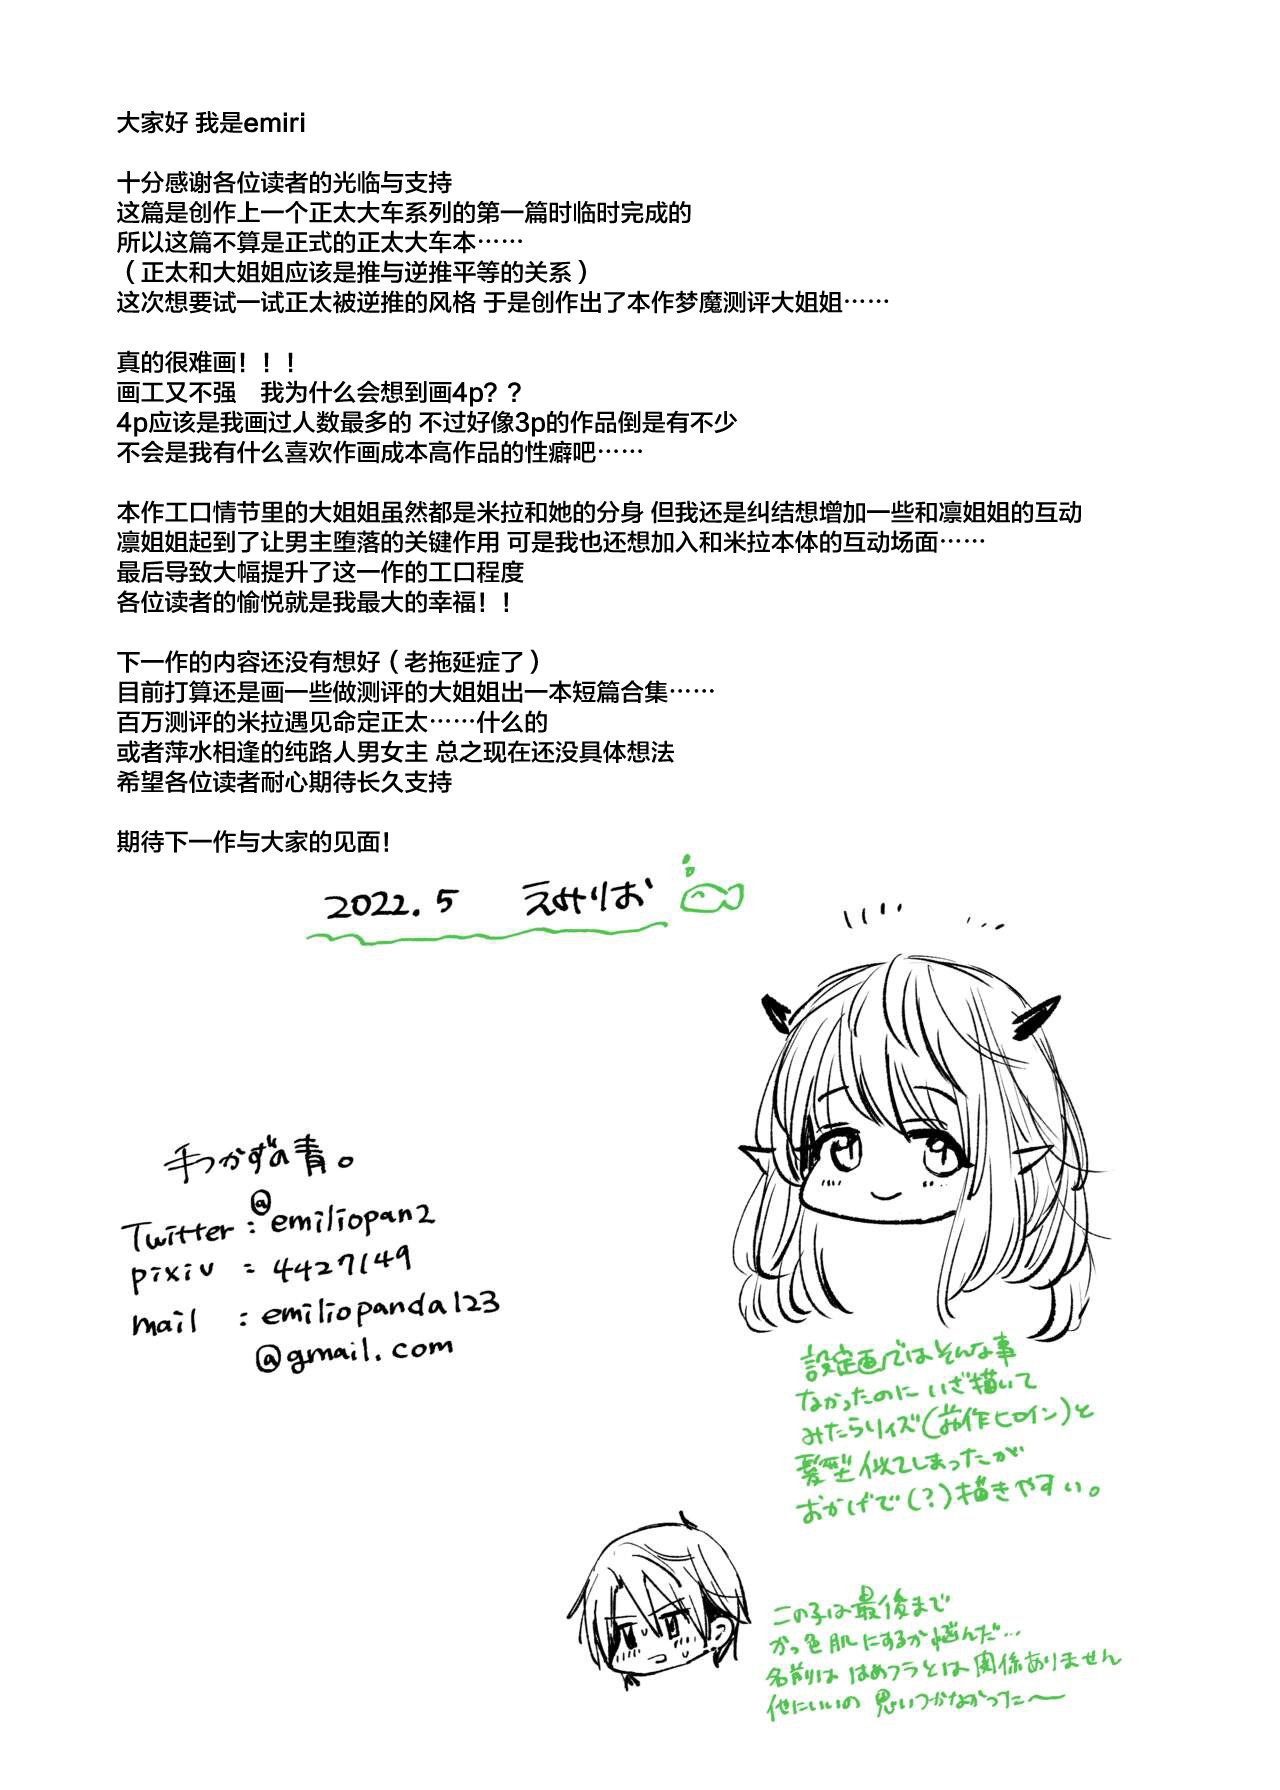 大家好 我是emiri
十分感谢各位读者的光临与支持
这篇是创作上一个正太大车系列的第一篇时临时完成的
所以这篇不算是正式的正太大车本……
（正太和大姐姐应该是推与逆推平等的关系）
这次想要试一试正太被逆推的风格 于是创作出了本作梦魔测评大姐姐……
真的很难画！！！
画工又不强　我为什么会想到画4p？？
4p应该是我画过人数最多的 不过好像3p的作品倒是有不少
不会是我有什么喜欢作画成本高作品的性癖吧……
本作工口情节里的大姐姐虽然都是米拉和她的分身 但我还是纠结想增加一些和凛姐姐的互动
凛姐姐起到了让男主堕落的关键作用 可是我也还想加入和米拉本体的互动场面……
最后导致大幅提升了这一作的工口程度
各位读者的愉悦就是我最大的幸福！！
下一作的内容还没有想好（老拖延症了）
目前打算还是画一些做测评的大姐姐出一本短篇合集……
百万测评的米拉遇见命定正太……什么的
或者萍水相逢的纯路人男女主 总之现在还没具体想法
希望各位读者耐心期待长久支持
期待下一作与大家的见面！
2022.5 えみりお
手つかずの青。
Twitter：@emiliopan2
pixiv ：4427149
mail ：emiliopanda123
@gmail.com
設定画ではそんな事
なかったのにいざ描いて
みたらリズ(前作ヒロイン)と
髪型似てしまったが
おかげで(?)描きやすい。
この子は最後まで
かっ色肌にするか悩んだ…
名前ははめフラとは関係ありません
他にいいの思いつかなかった〜